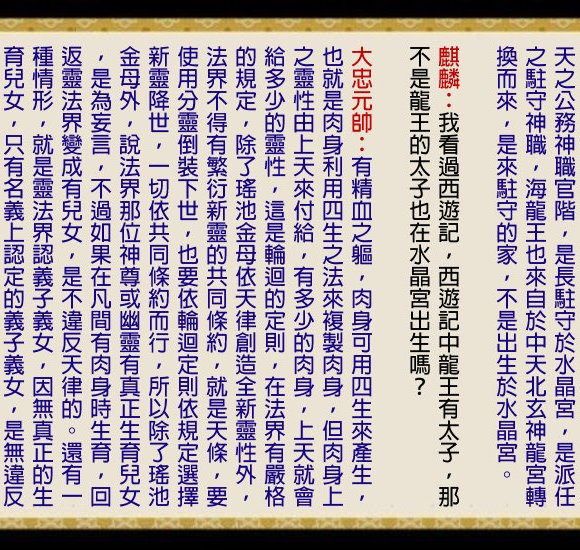 天之公務神職官階，是長駐守於水晶宮，是派任
之駐守神職，海龍王也來自於中天北玄神龍宮轉
換而來，是來駐守的家，不是出生於水晶宮。
麒麟：我看過西遊記，西遊記中龍王有太子，那
不是龍王的太子也在水晶宮出生嗎？
大忠元帥：有精血之軀，肉身可用四生來產生，
也就是肉身利用四生之法來複製肉身，但肉身上
之靈性由上天來付給，有多少的肉身，上天就會
給多少的靈性，這是輪迴的定則，在法界有嚴格
的規定，除了瑤池金母依天律創造全新靈性外，
法界不得有繁衍新靈的共同條約，就是天條，要
使用分靈倒裝下世，也要依輪迴定則依規定選擇
新靈降世，一切依共同條約而行，所以除了瑤池
金母外，說法界那位神尊或幽靈有真正生育兒女
，是為妄言，不過如果在凡間有肉身時生育，回
返靈法界變成有兒女，是不違反天律的。還有一
種情形，就是靈法界認義子義女，因無真正的生
育兒女，只有名義上認定的義子義女，是無違反